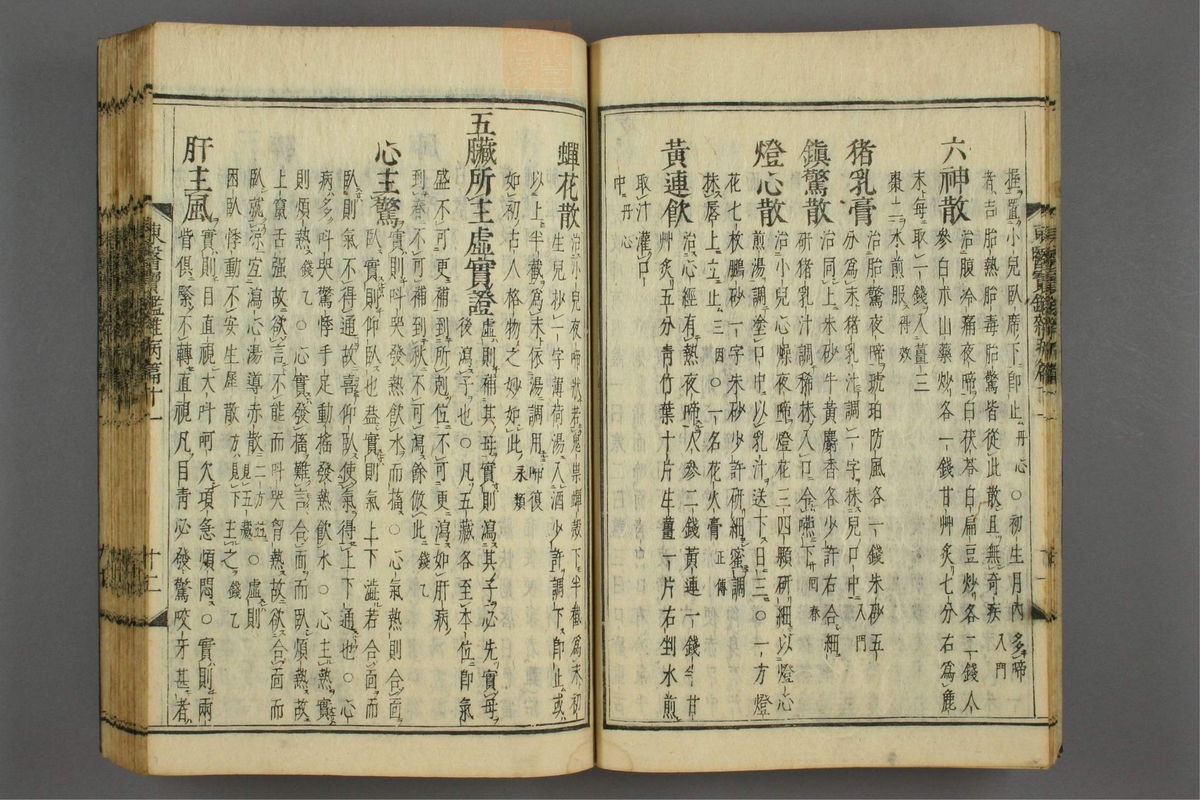 握置小兒臥席下卽止丹心○初生月內多啼
者吉胎熱胎毒胎驚皆從此散且無奇疾入門
六神散治腹冷痛夜啼白茯苓白扁豆炒各二錢人
參白朮山藥炒各一錢甘艸炙七分右爲麄
末每取一錢入薑二
棗二水煎服得效
猪乳膏治胎驚夜啼琥珀防風各一錢朱砂五
分爲末猪乳汁調一字抹兒口中入門
鎭驚散治同上朱砂牛黃麝香各少許右合細
研猪乳汁調稀抹入口令嚥下回春
燈心散治小兒心燥夜啼燈花三四顆研細以燈心
煎湯調塗口中以乳汁送下日三○一方燈
花七枚鵬砂一字朱砂少許研細蜜調
抹唇上立止三因○一名花火膏正傳
黃連飮治心經有熱夜啼人參二錢黃連一錢半甘
艸炙五分靑竹葉十片生薑一片右剉水煎
取汁灌口
中丹心
蟬花散治小兒夜啼狀若鬼祟蟬蛻下半截爲末初
生兒抄一字薄荷湯入酒少許調下卽止或
以上半截爲末依湯調用卽復
如初古人格物之妙如此永類
五臟所主虛實證虛則補其母實則瀉其子必先實母
後瀉子也○凡五藏各至本位卽氣
盛不可更補到所剋位不可更瀉如肝病
到春不可補到秋不可瀉餘倣此錢乙
心主驚實則叫哭發熱飮水而搐○心氣熱則合面
臥實則仰臥也盖實則氣上下澁若合面而
臥則氣不得通故喜仰臥使氣得上下通也○心
病多叫哭驚悸手足動搖發熱飮水○心主熱實
則煩熱錢乙○心實發搐難言合面而臥煩熱故
上竄舌强故欲言不能而叫哭胷熱故欲合面而
臥就凉宜瀉心湯導赤散二方並見五藏○虛則
困臥悸動不安生犀散方見下主之錢乙
肝主風實則目直視大叫呵欠項急煩悶○實則兩
眥俱緊不轉直視凡目靑必發驚咬牙甚者
東醫寶鑑雜病篇十一
十二